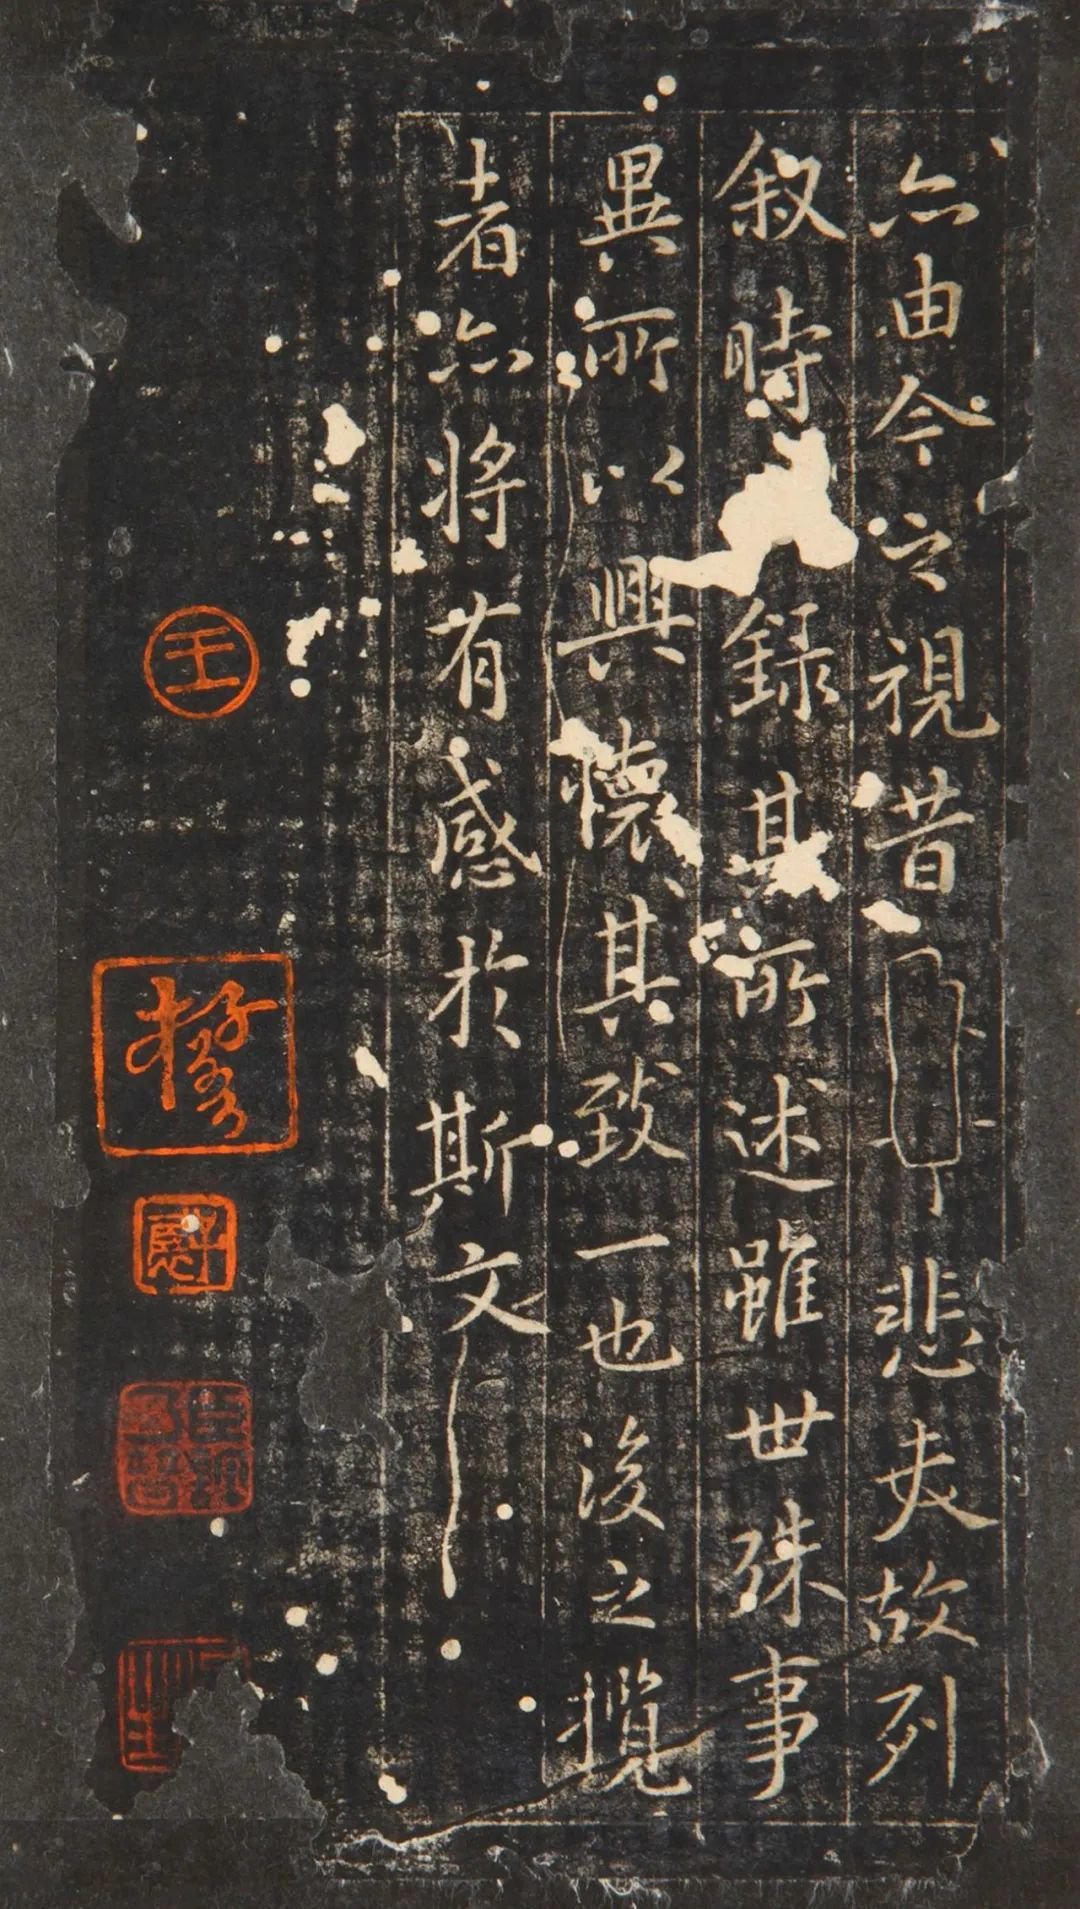 亦由今之視昔悲夫故列
叙時錄其所述雖世殊事
異所以興懷其致一也後之攬
者亦將有感於斯文
王